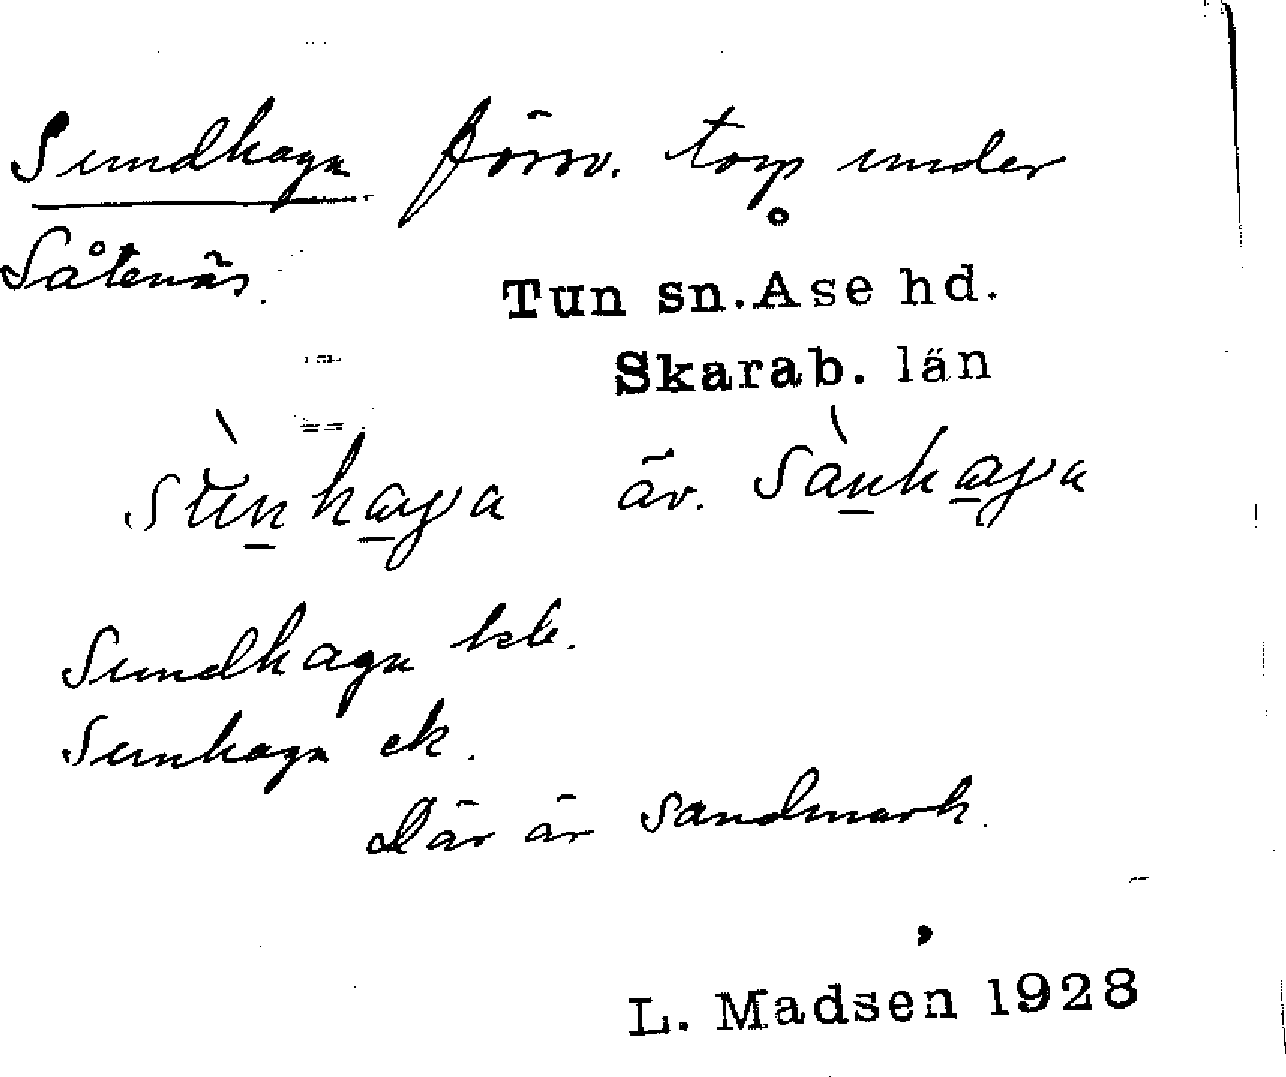 Sundhaga försv. torp under
Såtenäs.
Tun sn. Åse hd.
Skarab. län
sùnhaga äv. sànhaga
Sundhaga kb.
Sunhaga ek.
Där är sandmark.
L. Madsen 1928